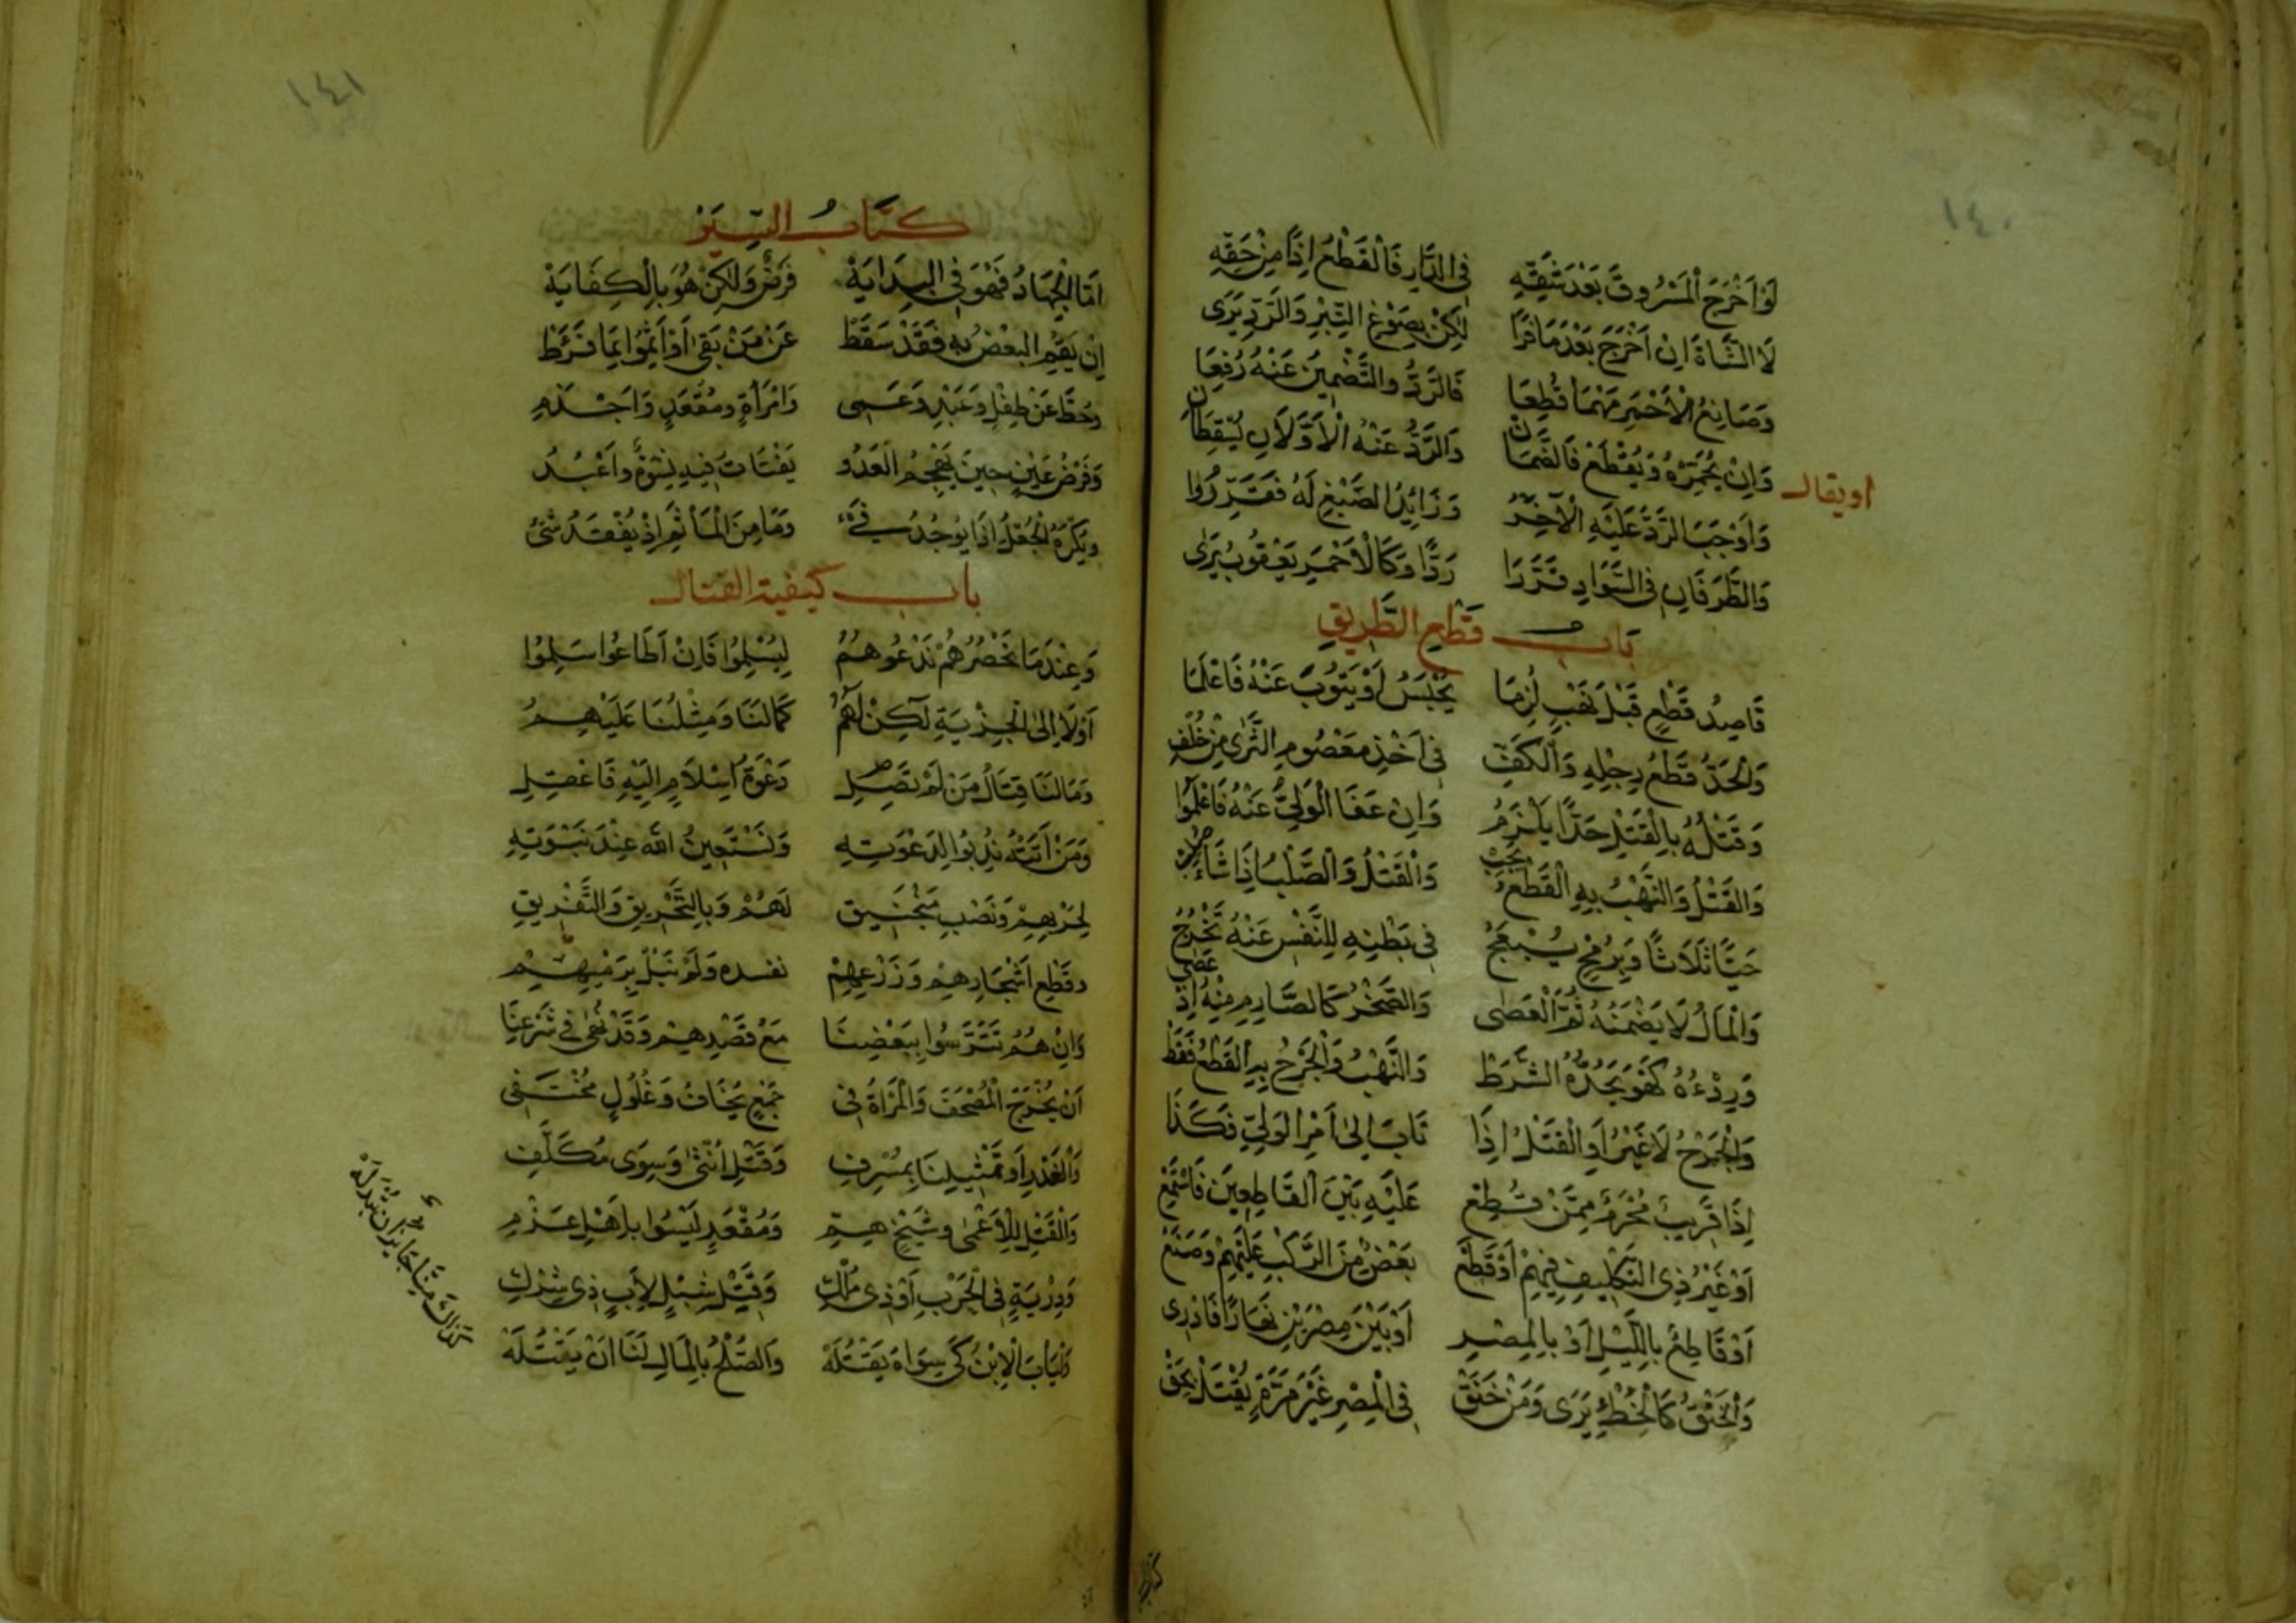 ١٤٠
لَوْ أَخْرَجَ الْمَسْرُوقَ بَعْدَ شَقِّهِ فِي الدَّارِ فَالْقَطْعُ إِذًا مِنْ حَقِّهِ
لَا الشَّاةَ إِنْ أَخْرَجَ بَعْدَمَا فَرَا لَكِنْ بِصَوْغِ التِّبْرِ وَالرَّدِّ يَرَى
وَصَابِغُ الْأَحْمَرِ مَهْمَا قُطِعَا فَالرَّدُّ والتَّضْمِينُ عَنْهُ رُفِعَا
وَإِنْ يُحَمِّرْهُ وَيُقْطَعْ فَالضَّمَانْ وَالرَّدُّ عَنْهُ الْأَوَّلَانِ يُسْقِطَانِ
او يقال
وَأَوْجَبَ الرَّدَّ عَلَيْهِ الْآخِرُ وَزَائِدُ الصَّبْغِ لَهُ فَقَرَّرُوا
وَالطَّرَفَانِ فِي السَّوَادِ قَرَّرَا رَدًّا وَكَالْأَحْمَرِ يَعْقُوبُ يَرَى
بَابُ قَطْعِ الطَّرِيقِ
قَاصِدُ قَطْعٍ قَبْلَ نَهْبٍ لُزِمَا يُحْبَسُ أَوْ يَتُوبَ عَنْهُ فَاعْلَمَا
وَالْحَدُّ قَطْعُ رِجْلِهِ وَالْكَفِّ فِي أَخْذِ مَعْصُومِ الثَّرَى مِنْ خُلْفِ
وَقَتْلُهُ بِالْقَتْلِ حَدًّا يَلْزَمُ وَإِنْ عَفَا الْوَلِيُّ عَنْهُ فَاعْلَمُوا
وَالقَتْلُ وَالنَّهْبُ بِهِ الْقَطْعُ يَجِبْ وَالْقَتْلُ وَالصَّلْبُ إِذَا شَاءَ
حَيًّا ثَلَاثًا وَبِرُمْحٍ يُبْعَجُ فِي بَطْنِهِ لِلنَّفْسِ عَنْهُ تَخْرُجُ
وَالْمَالُ لَا يَضْمَنُهُ ثُمَّ الْعَصَى وَالصَّخْرُ كَالصَّارِمِ مِنْهُ إِذْ عَصَى
وَرِدْءُهُ كَهُوَ بِحَدِّهِ الشَّرَطْ وَالنَّهْبُ وَالْجَرْحُ بِهِ الْقَطْعُ فَقَطْ
وَالْجَرْحُ لَا غَيْرُ أَوِ الْقَتْلُ إِذَا تَابَ إِلَى أَمْرِ الْوَلِيِّ فَكَذَا
إِذَا قَرِيبٌ مَحْرَمٌ مِمَّنْ قُطِعْ عَلَيْهِ بَيْنَ الْقَاطِعِينَ فَاسْتَمِعْ
أَوْ غَيْرُ ذِي التَّكْلِيفِ فِيهِمْ أَوْ قَطَعْ بَعْضٌ مِنَ الرَّكْبِ عَلَيْهِمْ وَصَنَعْ
أَوْ قَاطِعٌ بِاللَّيْلِ أَوْ بِالْمِصْرِ أَوْ بَيْنَ مِصْرَيْنِ نَهَارًا فَادْرِي
وَالْخَنْقُ كَالْخَطَإِ يَرَى وَمَنْ خَنَقْ فِي الْمِصْرِ غَيْرَ مَرَّةٍ يُقْتَلْ بِحَقْ
١٤١
كِتَابُ السِّيَرْ
أَمَّا الْجِهَادُ فَهُوَ فِي الْبِدَايَهْ فَرْضٌ وَلَكِنْ هُوَ بِالْكِفَايَهْ
إِنْ يَقُمِ الْبَعْضُ بِهِ فَقَدْ سَقَطْ عَنْ مَنْ بَقِي أَوْ أَثِمُوا بِمَا فَرَطْ
وَحُطَّ عَنْ طِفْلٍ وَعَبْدٍ وَعَمِي وَامْرَأَةٍ وَمُقْعَدٍ وَأَجْذَمِ
وَفَرْضُ عَيْنٍ حِينَ يَهْجُمُ الْعَدُو يَفْتَاتُ فِيهِ نِسْوَةٌ وأَعْبُدُ
وَيُكْرَهُ الْجُعْلُ إِذَا يُوجَدُ فَيْءْ وَمَا مِنَ الْمَأْثَمِ إِذْ يُفْقَدُ شَيْءْ
بَابُ كيفية القتال
وَعِنْدَمَا نَحْصُرُهُمْ نَدْعُوهُمُ لِيُسْلِمُوا فَإِنْ أَطَاعُوا سَلِمُوا
أَوْ لَا إِلَى الْجِزْيَةِ لَكِنْ لَهُمُ كَمَا لَنَا وَمِثْلُنَا عَلَيْهِمُ
وَمَا لَنَا قِتَالُ مَنْ لَمْ تَصِلِ دَعْوَةُ إِسْلَامٍ إِلَيْهِ فَاعْقِلِ
وَمَنْ أَتَتْهُ نُدِبُوا لِدَعْوَتِهِ وَنَسْتَعِينُ اللهَ عِنْدَ نَبْوَتِهِ
لِحَرْبِهِمْ وَنَصْبِ مَنْجَنِيقِ لَهُمْ وَبِالتَّحْرِيقِ وَالتَّفْرِيقِ
وَقَطْعِ أَشْجَارِهِمْ وَزَرْعِهِمْ نفسده وَلَوْ نَبْلٌ بِرَمْيِهِمْ
وَإِنْ هُمُ تَتَرَّسُوا بِبَعْضِنَا مَعْ قَصْدِهِمْ وَقَدْ نُهِي فِي شَرْعِنَا
أَنْ يُخْرَجَ الْمُصْحَفُ وَالْمَرْأَةُ فِي جَمْعٍ يُخَافُ وَغُلُولٍ مُخْتَفِي
وَالْغَدْرِ أَوْ تَمْثِيلِنَا بِمُسْرِفِ وَقَتْلِ أُنْثَى وَسِوَى مُكَلَّفِ
وَالْقَتْلِ لِلْأَعْمَى وشَيْخٍ هِمِّ وَمُقْعَدٍ لَيْسُوا بِأَهْلِ عَزْمِ
وَدِرْيَةٍ فِي الْحَرْبِ أَوْ ذِي مُلْكِ وَقَتْلِ شِبْلٍ لِأَبٍ ذِي شِرْكِ
وَلْيَأْبَ الْإِبْنُ كَيْ سِوَاهُ يَقْتُلَهْ وَالصُّلْحُ بِالْمَالِ لَنَا أَنْ يَقْتُلَهْ
كَذَاكَ مِنَّا جَائِزٌ أَنْ نَبْذُلَهْ